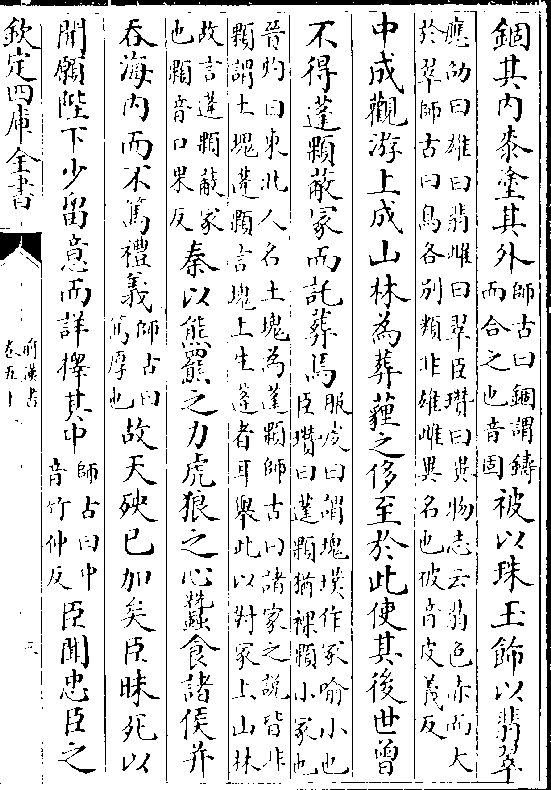 錮其内桼塗其外師古曰錮謂鑄而合之也音固被以珠玉飾以翡翠
應劭曰雄曰翡雌曰翠臣瓚曰異物志云翡色赤而大
於翠師古曰鳥各别類非雄雌異名也被音皮義反
中成觀游上成山林為葬薶之侈至於此使其後世曾
不得蓬顆蔽冢而託葬焉服虔曰謂塊墣作冢喻小也臣瓚曰蓬顆猶裸顆小冢也
晉灼曰東北人名土塊為蓬顆師古曰諸家之說皆非
顆謂土塊蓬顆言塊上生蓬者耳舉此以對冢上山林
故言蓬顆蔽冢也顆音口果反秦以熊羆之力虎狼之心蠶食諸侯并
吞海内而不篤禮義師古曰篤厚也故天殃已加矣臣昧死以
聞願陛下少留意而詳擇其中師古曰中音竹仲反臣聞忠臣之
欽定四庫全書
前漢書
卷五十一
三